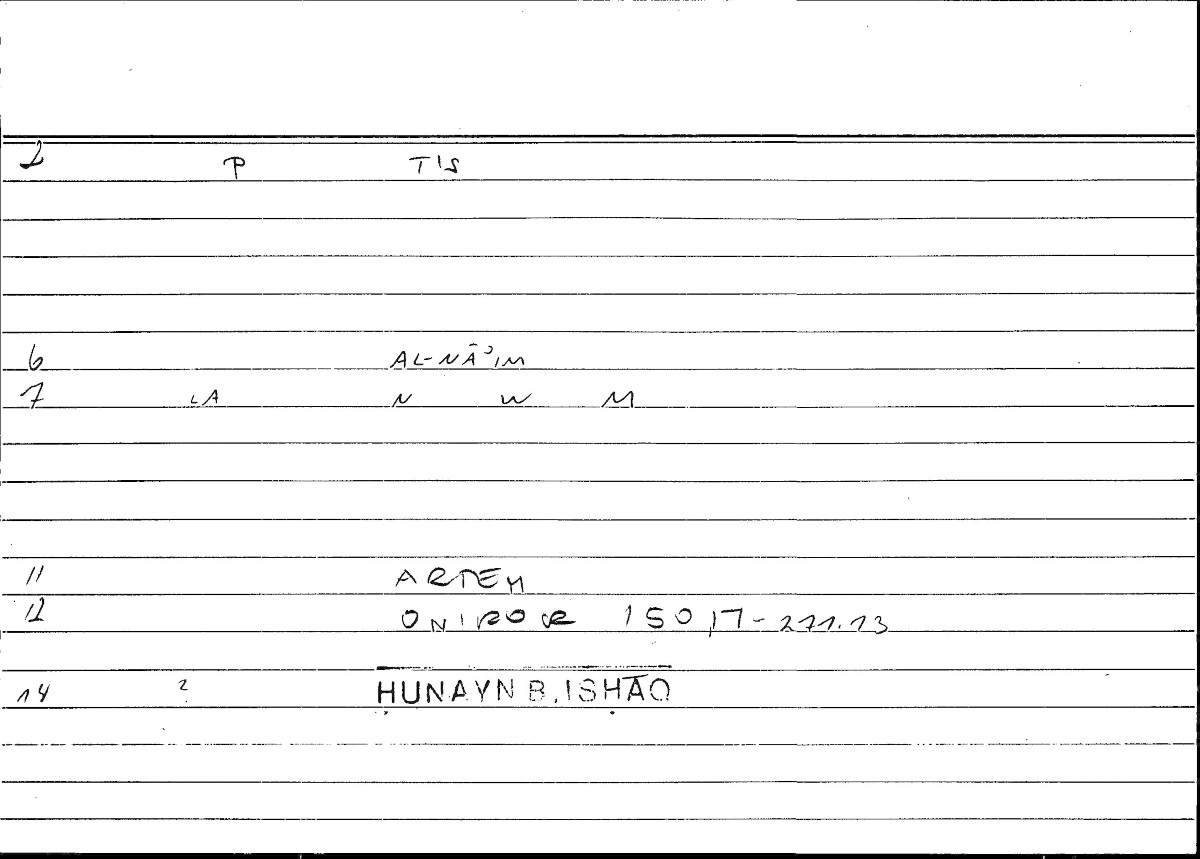 2 P T'S
6 AL-NĀʾIM
7 LA N W M
11 ARTEM
12 ONIROCR 150,17-271.13
14 2 ḤUNAYN B. ISḤĀQ